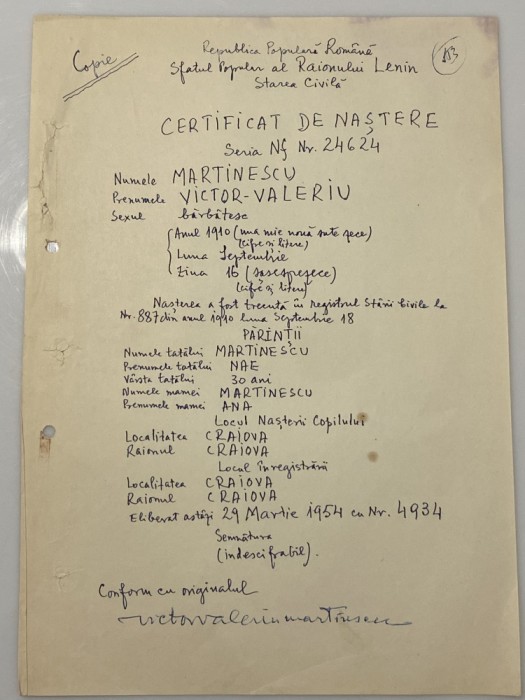 Copie
Republica Populară Română
Sfatul Popular al Raionului Lenin
Starea Civilă
CERTIFICAT DE NAȘTERE
Seria Nș Nr. 24624
Numele MARTINESCU
Prenumele VICTOR-VALERIU
Sexul bărbătesc
Anul 1910 (una mie nouă sute zece)
(cifre și litere)
Luna Septembrie
Ziua 16 (șasespezece)
(cifre și litere)
Nașterea a fost trecută în registrul Stării Civile la
Nr. 887 din anul 1910 luna Septembrie 18
PĂRINȚII
Numele tatălui MARTINESCU
Prenumele tatălui NAE
Vârsta tatălui 30 ani
Numele mamei MARTINESCU
Prenumele mamei ANA
Locul Nașterii Copilului
Localitatea CRAIOVA
Raionul CRAIOVA
Locul înregistrării
Localitatea CRAIOVA
Raionul CRAIOVA
Eliberat astăzi 29 Martie 1954 cu Nr. 4934
Semnătura
(indescifrabil).
Conform cu originalul
victor valeriu martinescu